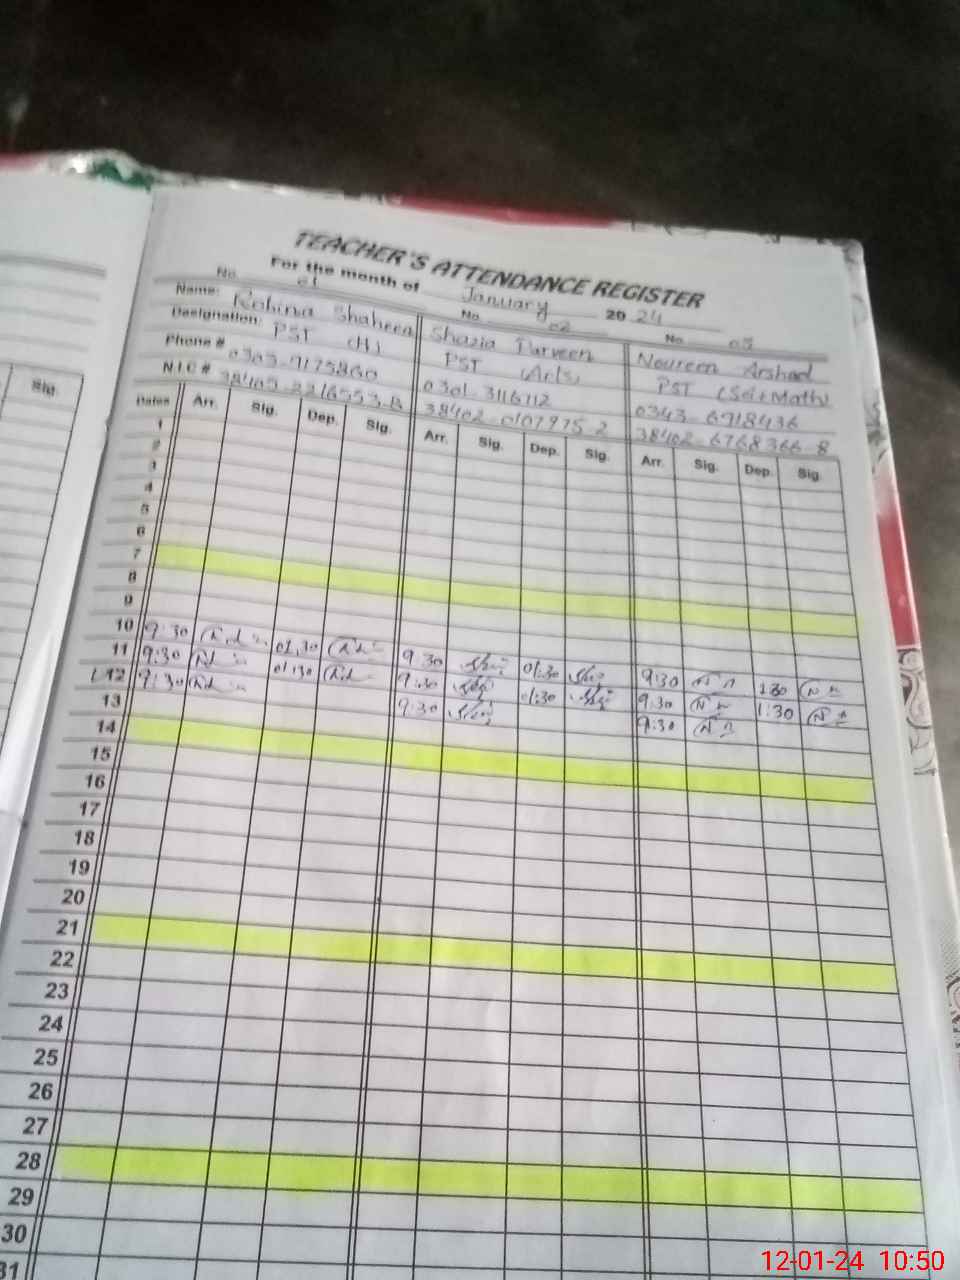 Sig.
TEACHER'S ATTENDANCE REGISTER
For the month of January 2024
No. 01 No. 02 No. 03
Name: Robina Shaheen Shazia Parveen Noureen Arshad
Designation: PST (H) PST (Arts) PST (Sci+Math)
Phone # 0301-3116112 0343-6918436
N.I.C # 38402-0107975-2 38402-6768366-8
Dates Arr. Sig. Dep. Sig. Arr. Sig. Dep. Sig. Arr. Sig. Dep. Sig.
1
2
3
4
5
6
7
8
9
10 9:30 01:30 9:30 01:30 9:30 1:30
11 9:30 01:30 9:30 01:30 9:30 1:30
12 9:30 9:30 9:30
13
14
15
16
17
18
19
20
21
22
23
24
25
26
27
28
29
30
31
12-01-24 10:50